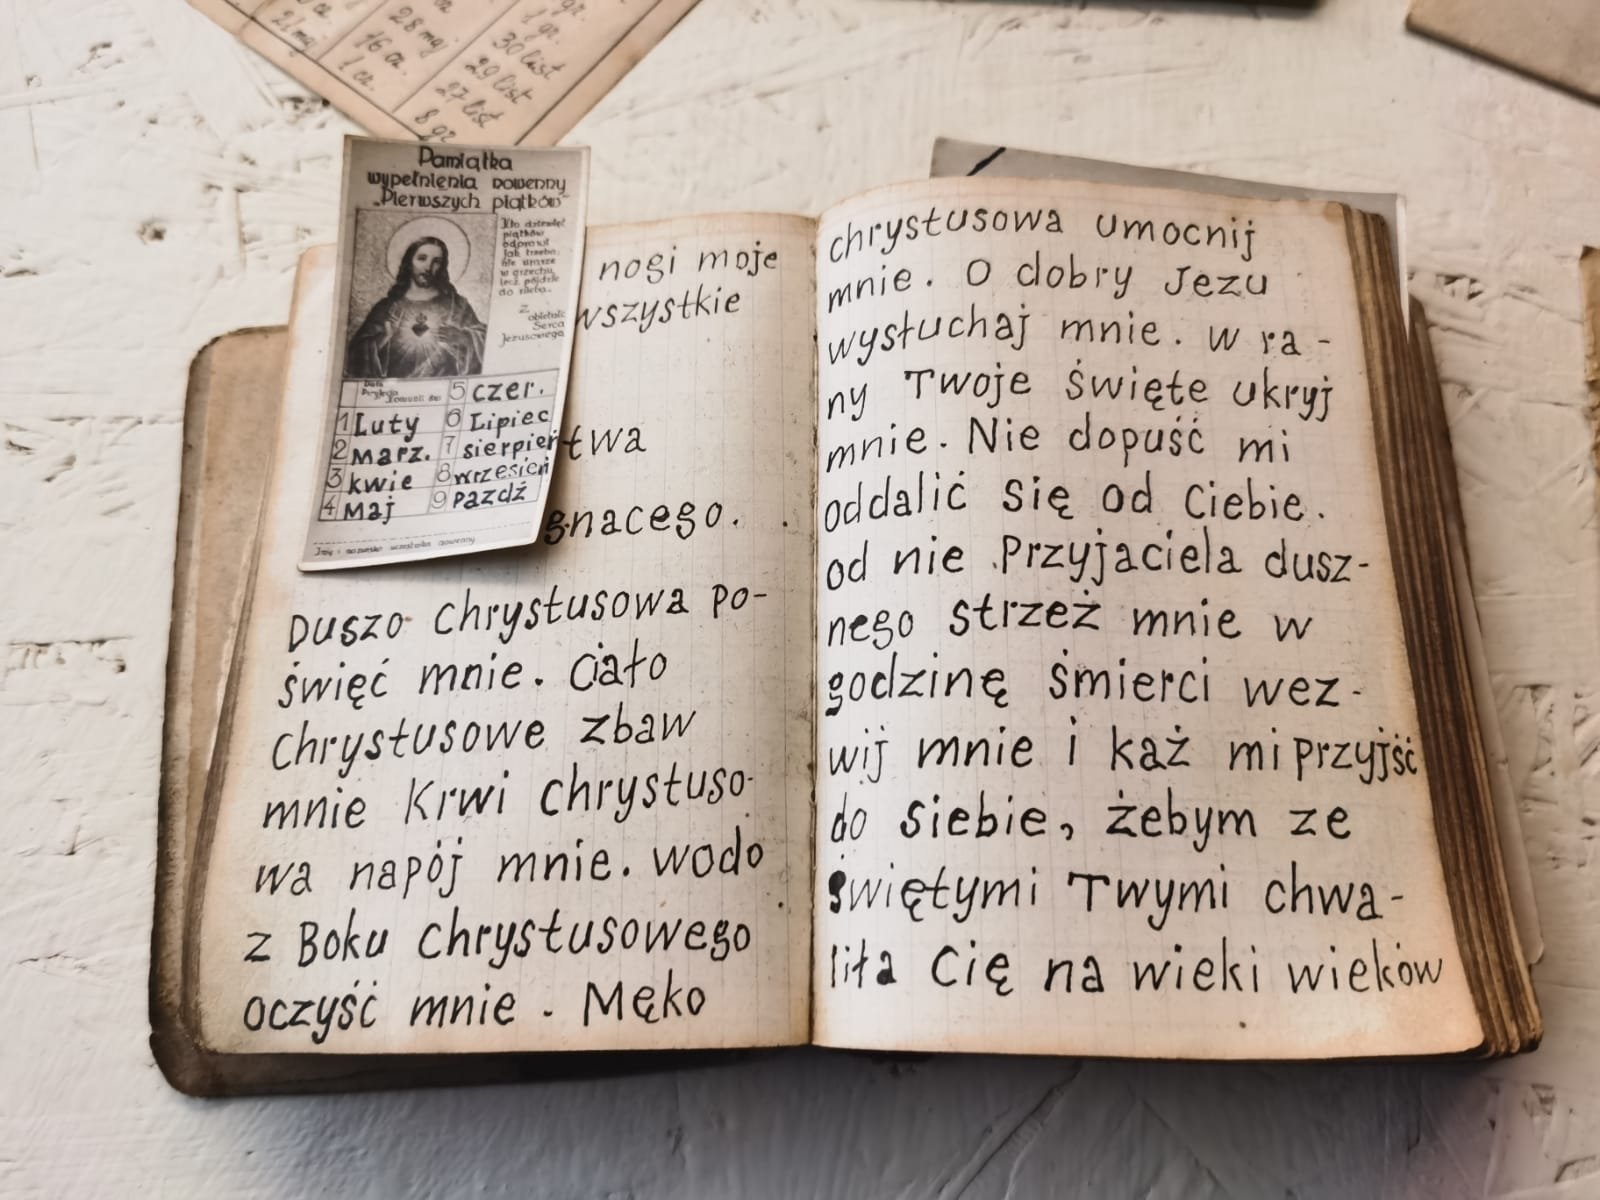 21 maj
28 maj
16 cz.
1 cz.
1 gr.
30 list
29 list
27 list
8 gr.
Pamiątka
wypełnienia nowenny
„Pierwszych piątków”
Kto dziewięć
piątków
odprawi
jak trzeba,
nie umrze
w grzechu,
lecz pójdzie
do nieba.
Z
obietnic
Serca
Jezusowego
Data
Przyjęcia
Komunii św.
5 czer.
1 Luty 6 Lipiec
2 Marz. 7 sierpień
3 kwie 8 wrzesień
4 Maj 9 Pazdź
Imię i nazwisko uczestnika nowenny
nogi moje
wszystkie
twa
gnacego.
Duszo chrystusowa po-
święć mnie. Ciało
chrystusowe zbaw
mnie Krwi chrystuso-
wa napój mnie. wodo
z Boku chrystusowego
oczyść mnie. Męko
chrystusowa umocnij
mnie. O dobry Jezu
wysłuchaj mnie. w ra-
ny Twoje święte ukryj
mnie. Nie dopuść mi
oddalić się od Ciebie.
od nie Przyjaciela dusz-
nego strzeż mnie w
godzinę śmierci wez-
wij mnie i każ mi przyjść
do siebie, żebym ze
świętymi Twymi chwa-
liła Cię na wieki wieków